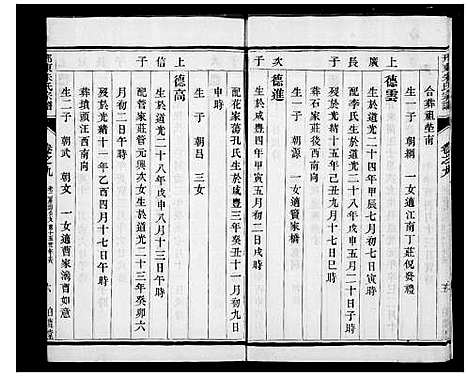 合葬祖塋南
生一子 朝綱 一女適江南丁莊倪發禮
上
德雲
廣
生於道光二十四年甲辰七月初七日寅時
長
配李氏生於道光戊申五月二十日子時
子
歿於光緒十五年己丑九月十七日巳時
葬石家莊後西南向
生一子 朝源 一女適賈家橋
次
德進
子
生於咸豐四年甲寅五月初二日戌時
配花家蕩孔氏生於咸豐三年癸丑十一月初九日
時
生一子 朝昌 三女
上
德高
信
生於道光二十八年戊申八月十三日午時
子
配管家莊管元興次女生於道光二十三年癸卯六
月初二日午時
歿於光緒十一年乙酉四月十七日午時
葬墳頭江西南向
生二子 朝武 朝文 一女適曹家灣曹如意
卷之九
六